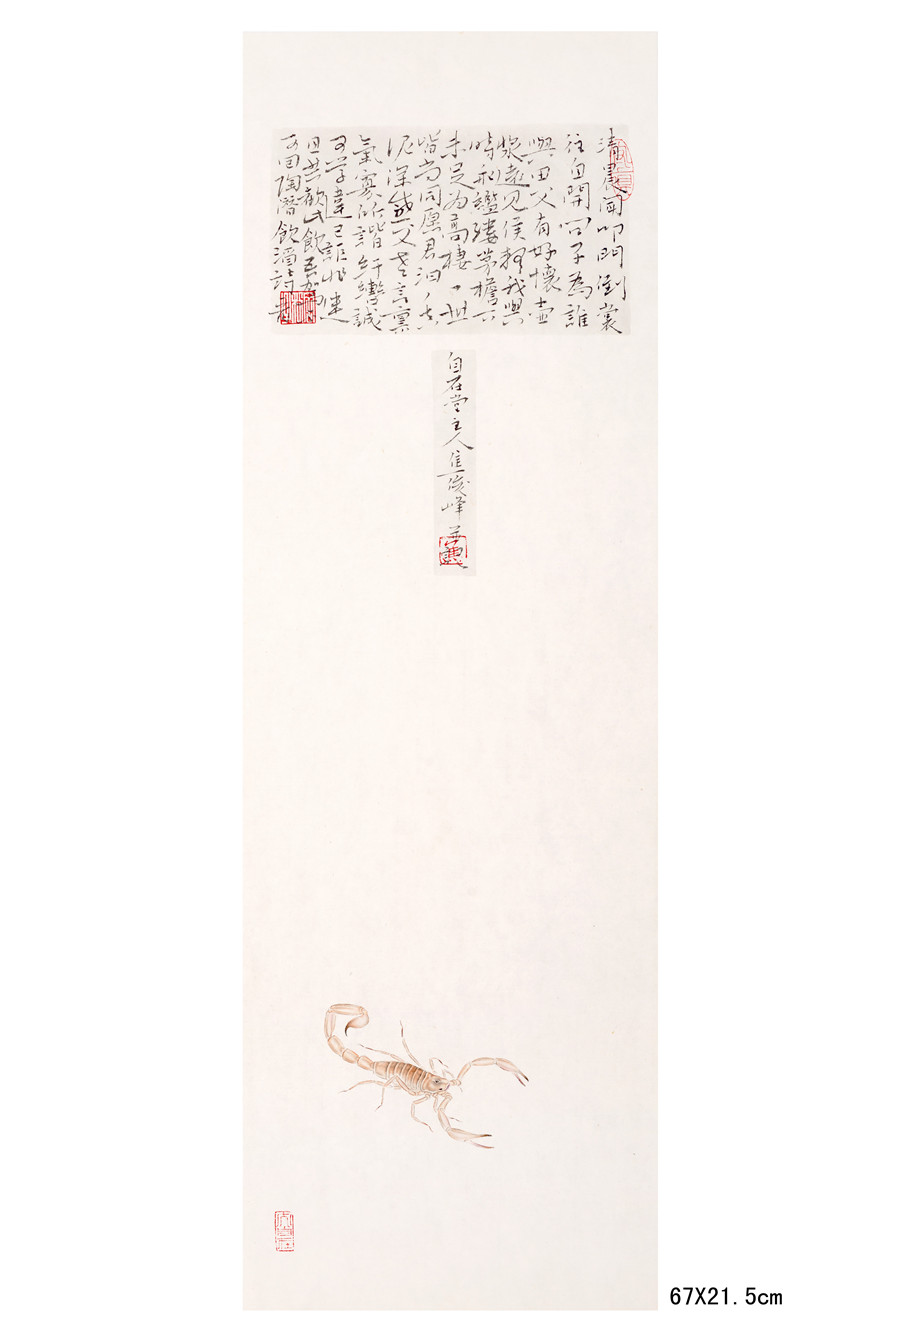 清晨聞叩門倒裳
往自開問子為誰
與田父有好懷壺
漿遠見侯疑我與
時乖襤縷茅檐下
未足為高棲一世
皆尚同願君汩其
泥深感父老言稟
氣寡所諧紆轡誠
可學違己詎非迷
且共歡此飲吾駕
可回陶潛飲酒詩
自在堂主人焦俊峰并畫
67X21.5cm